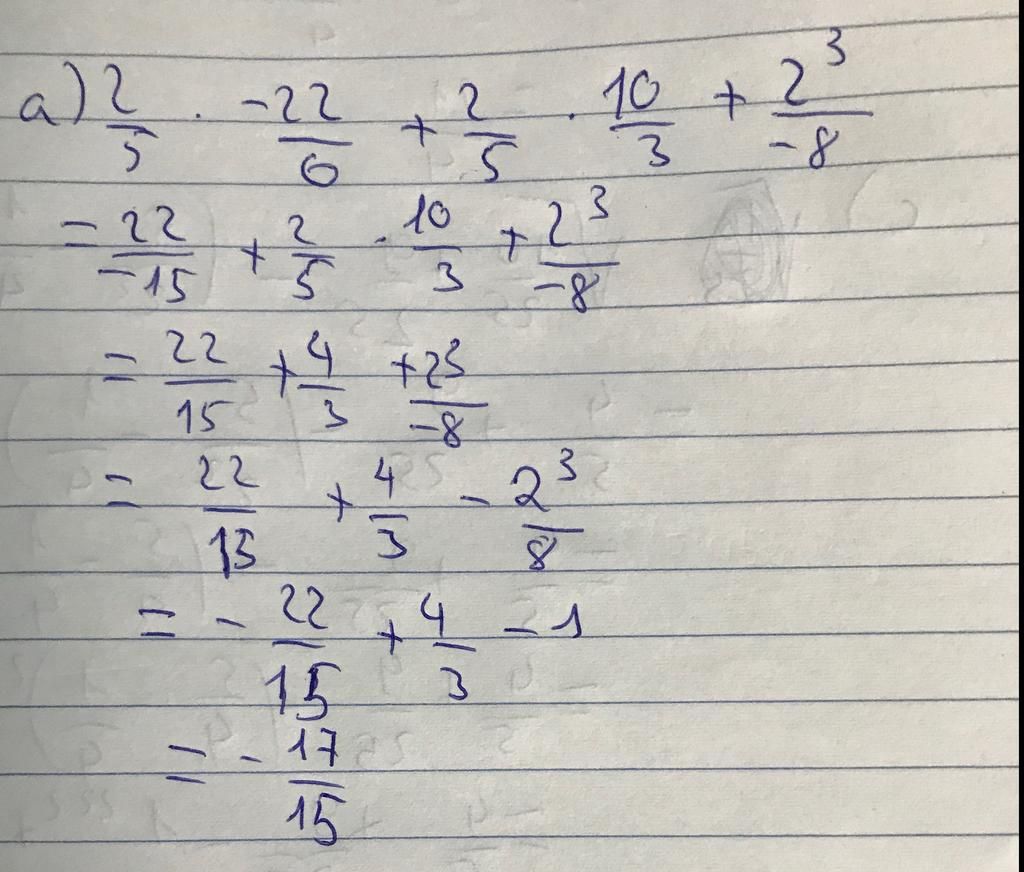 a) 2/5 · -22/6 + 2/5 · 10/3 + 2³/-8
= 22/-15 + 2/5 · 10/3 + 2³/-8
= 22/15 + 4/3 + 2³/-8
= 22/15 + 4/3 - 2³/8
= - 22/15 + 4/3 - 1
= - 17/15